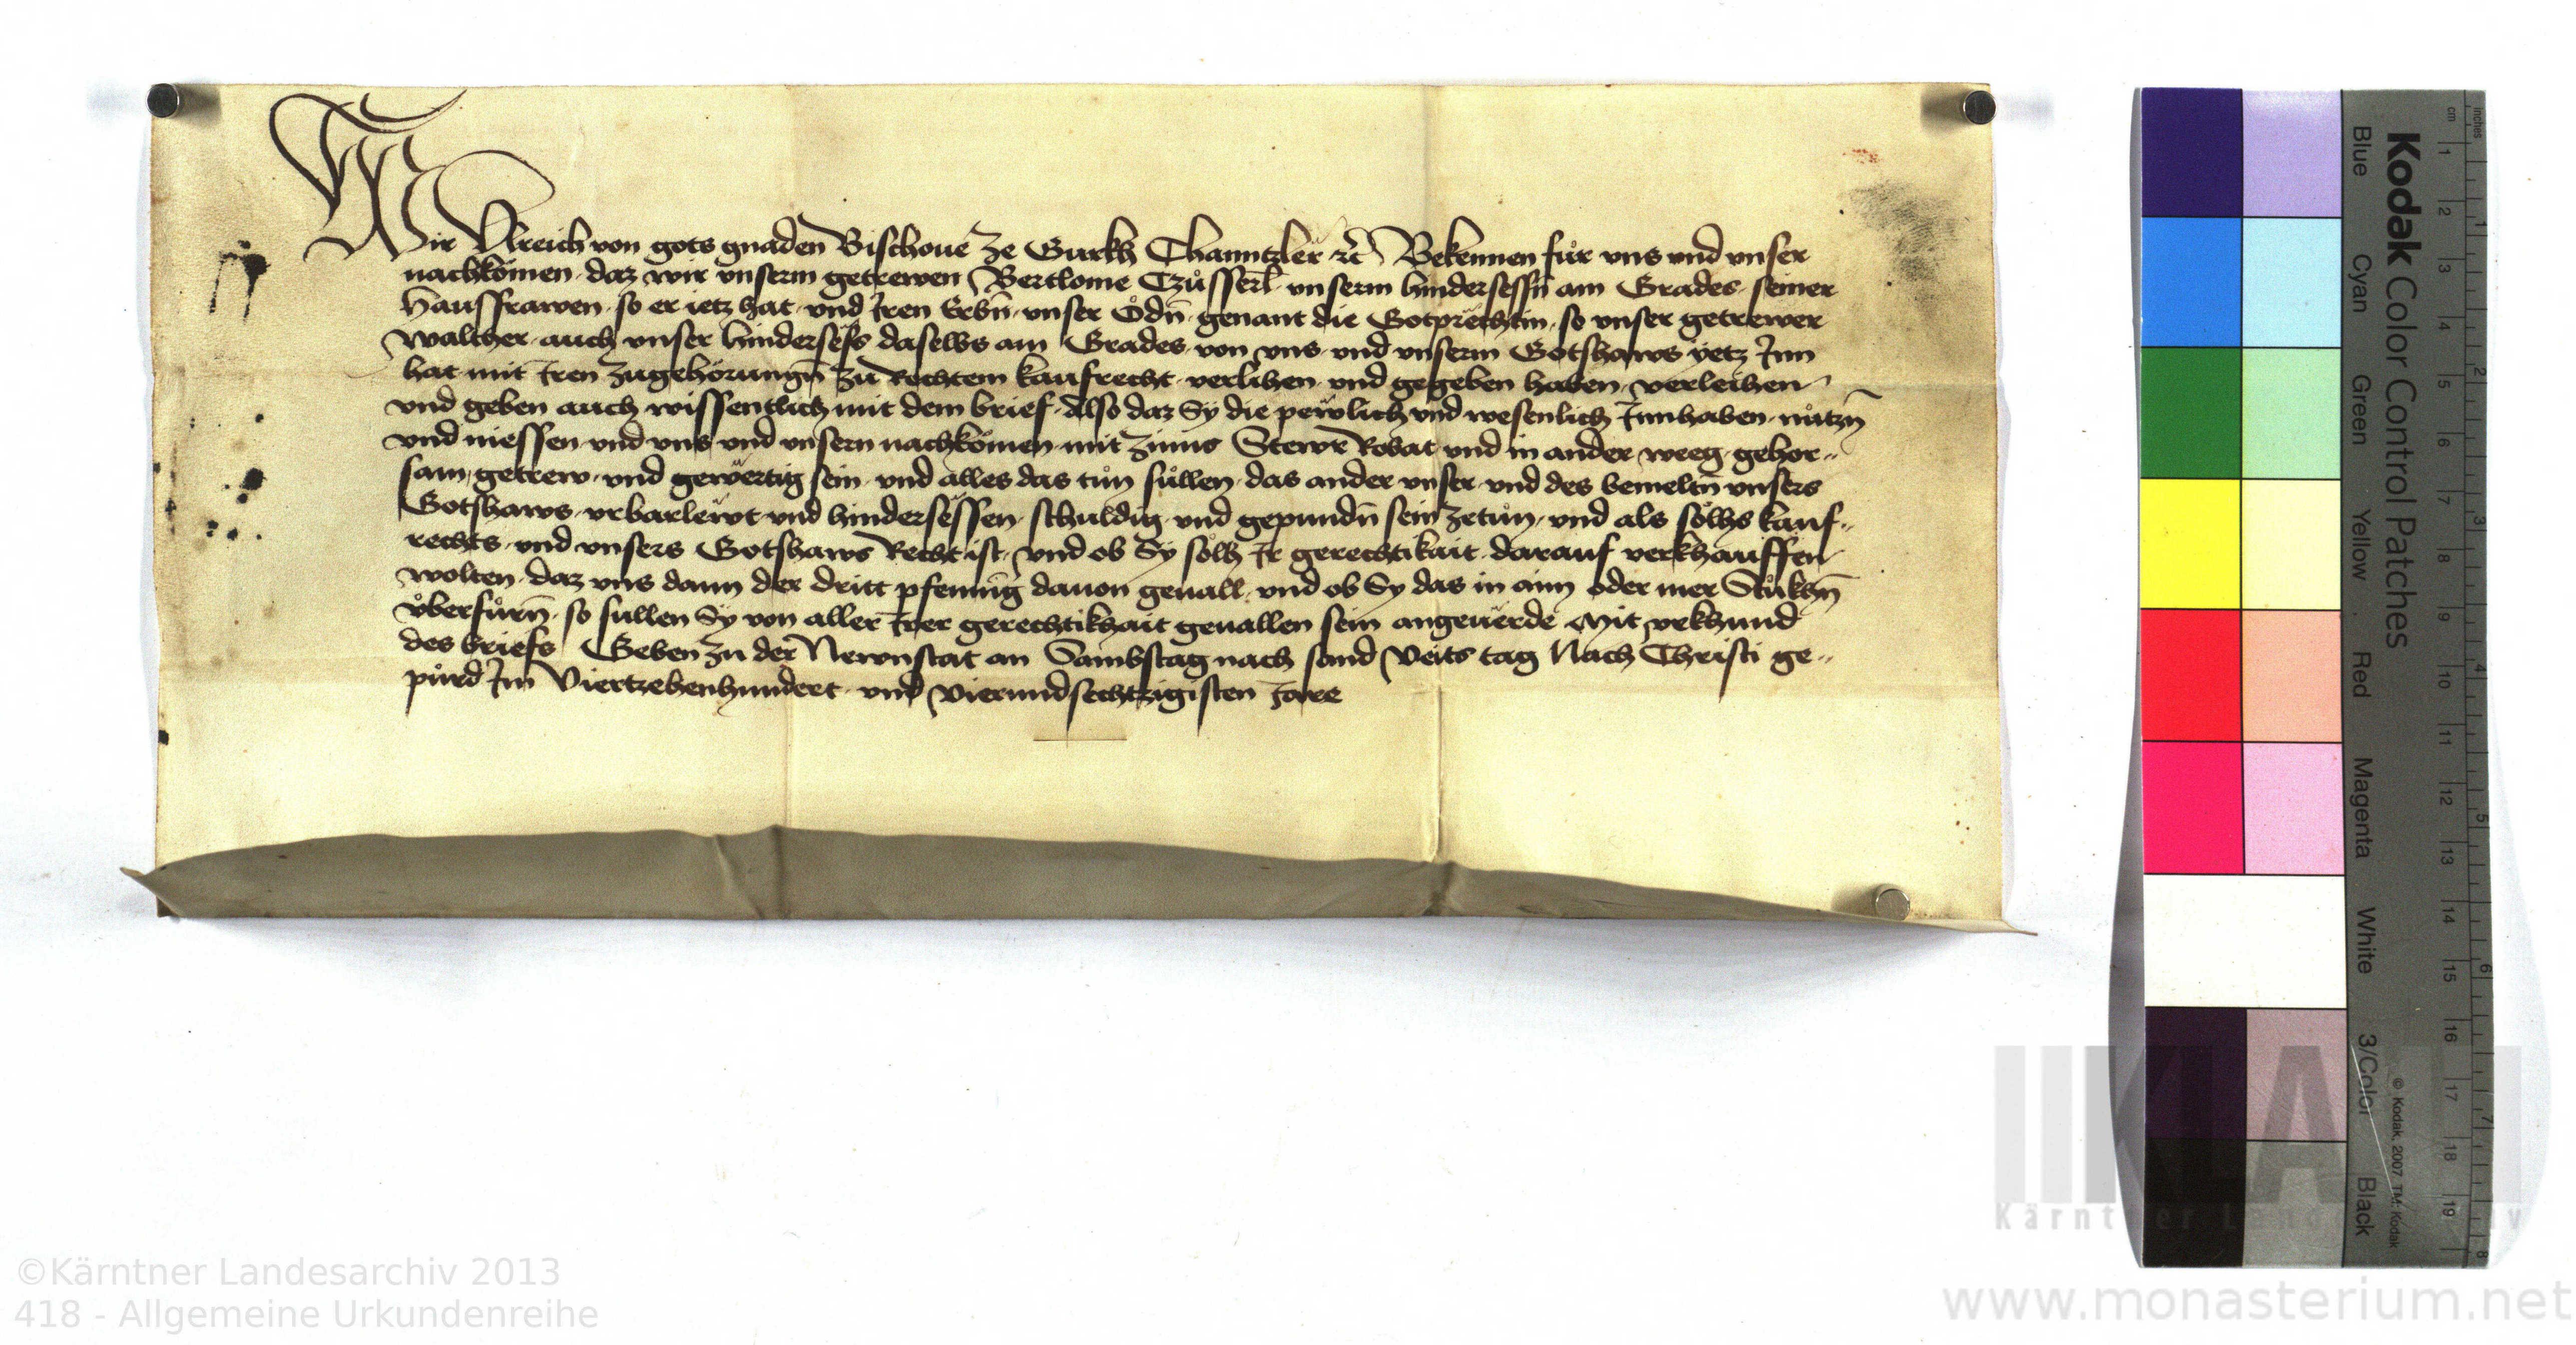 Wir Ulreich von gots gnaden Bischoue ze Gurkh Channtzler ꝛc̃ Bekennen fůr vns vnd vnser
nachkömen · daz wir vnserm getrewen Bertlome Czůsserl̄ vnserm hindersessn̄ am Grades · seiner
haussfrawen · so er ietz hat · vnd Iren Erbn̄ · vnser Ödn̄ · genant die Gotprechtin · so vnser getrewer
Walther · auch vnser hindersëss daselbs am Grades · von vns · vnd vnserm Gotshaws yetz Inn
hat · mit Iren zugehörungn̄ zu Rechtem kaufrecht · verlihen · vnd gegeben haben · verleihen
vnd geben auch wissentlich mit dem brief · Also daz Sÿ die pewlich vnd wesenlich Innhaben · nůtzn̄
vnd niessen · vnd vns vnd vnsern nachkömen · mit zinns Stewr Robat · vnd in ander weeg · gehor〃
sam · getrew · vnd gewërtig sein · vnd alles das tůn sůllen · das ander vnser · vnd des bemeltn̄ vnsers
Gotshaws · vrbarlewt · vnd hindersëssen · schuldig · vnd gepundn̄ sein zetůn · vnd als sölhs kauf〃
rechts · vnd vnsers Gotshaws Recht ist · vnd ob Sÿ sölh Ir gerechtikait · darauf verkhauffen
wolten · daz vns dann der dritt pfennīg dauon geuall · vnd ob Sy das in ainn oder mer Stůkhn̄
vberfůrn̄ · so sullen Sÿ von aller Irer gerechtikhait geuallen sein angeuërde Mit vrkhund
des briefs Geben zu der Newnstat an Sambstag nach sand Veits tag Nach Christi ge〃
purd Im Viertzehenhundert · vnd Vierundsechtzigisten Jare
Kodak Color Control Patches
Blue Cyan Green Yellow Red Magenta White 3/Color Black
© Kodak, 2007 TM: Kodak
inches 1 2 3 4 5 6 7 8
cm 1 2 3 4 5 6 7 8 9 10 11 12 13 14 15 16 17 18 19
©Kärntner Landesarchiv 2013
418 - Allgemeine Urkundenreihe
www.monasterium.net